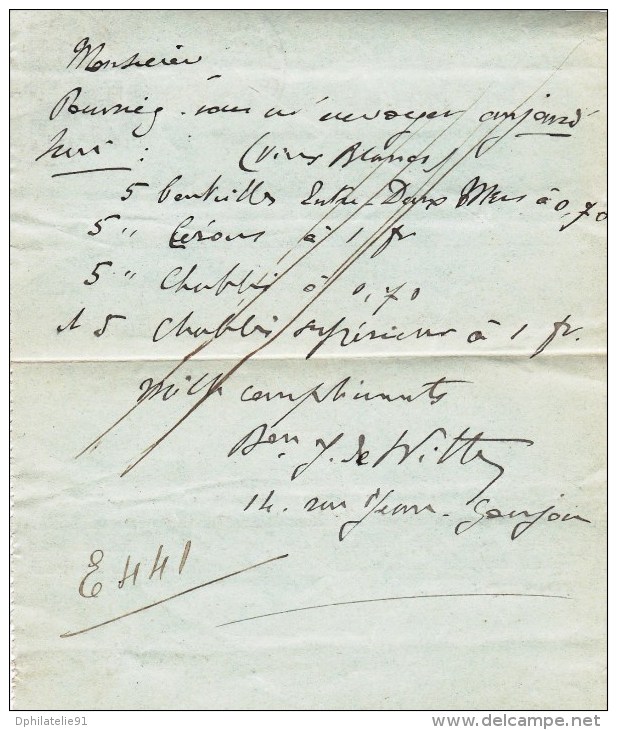 Monsieur
Pourriez-vous m'envoyer aujourd'
hui : (Vins Blancs)
5 bouteilles Entre-Deux Mers à 0,70
5 " Cérons à 1 fr
5 " Chablis à 0,70
et 5 Chablis supérieur à 1 fr.
mille compliments
Bon J. de Witte
14. rue Jean-Goujon
E 441
Dphilatelie91
www.delcampe.net